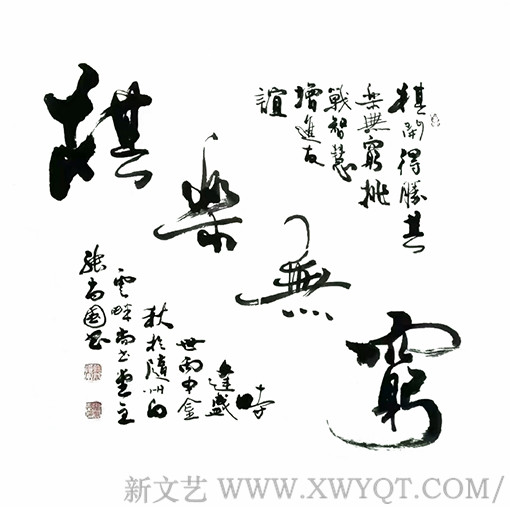 棋樂無窮
棋開得勝其
樂無窮挑
戰智慧
增進友
誼
時
逢盛
世丙申金
秋於隨州白
雲畔尚書堂主
張尚國書
新文艺 WWW.XWYQT.COM/